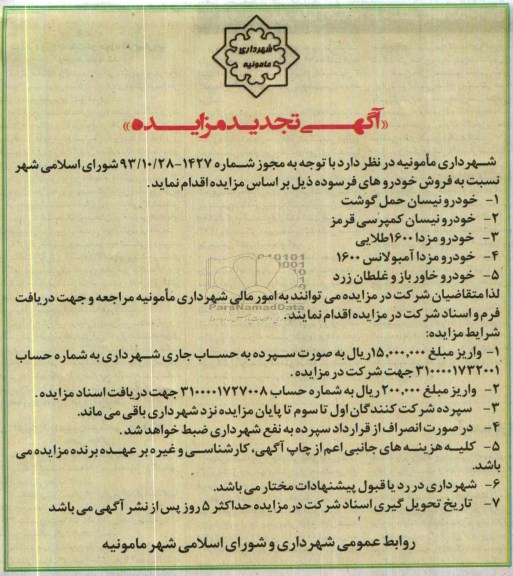 شهرداری
مامونیه
«آگهی تجدید مزایده»
شهرداری مأمونیه در نظر دارد با توجه به مجوز شماره ۱۴۲۷-۹۳/۱۰/۲۸ شورای اسلامی شهر
نسبت به فروش خودرو های فرسوده ذیل بر اساس مزایده اقدام نماید.
۱- خودرو نیسان حمل گوشت
۲- خودرو نیسان کمپرسی قرمز
۳- خودرو مزدا ۱۶۰۰ طلایی
۴- خودرو مزدا آمبولانس ۱۶۰۰
۵- خودرو خاور باز و غلطان زرد
لذا متقاضیان شرکت در مزایده می توانند به امور مالی شهرداری مأمونیه مراجعه و جهت دریافت
فرم و اسناد شرکت در مزایده اقدام نمایند.
ParsNamadData
شرایط مزایده:
۱- واریز مبلغ ۱۵,۰۰۰,۰۰۰ ریال به صورت سپرده به حساب جاری شهرداری به شماره حساب
۳۱۰۰۰۰۱۷۳۲۰۰۱ جهت شرکت در مزایده.
۲- واریز مبلغ ۲۰۰,۰۰۰ ریال به شماره حساب ۳۱۰۰۰۰۱۷۲۷۰۰۸ جهت دریافت اسناد مزایده.
۳- سپرده شرکت کنندگان اول تا سوم تا پایان مزایده نزد شهرداری باقی می ماند.
۴- در صورت انصراف از قرارداد سپرده به نفع شهرداری ضبط خواهد شد.
۵- کلیه هزینه های جانبی اعم از چاپ آگهی، کارشناسی و غیره بر عهده برنده مزایده می
باشد.
۶- شهرداری در رد یا قبول پیشنهادات مختار می باشد.
۷- تاریخ تحویل گیری اسناد شرکت در مزایده حداکثر ۵ روز پس از نشر آگهی می باشد
روابط عمومی شهرداری و شورای اسلامی شهر مامونیه